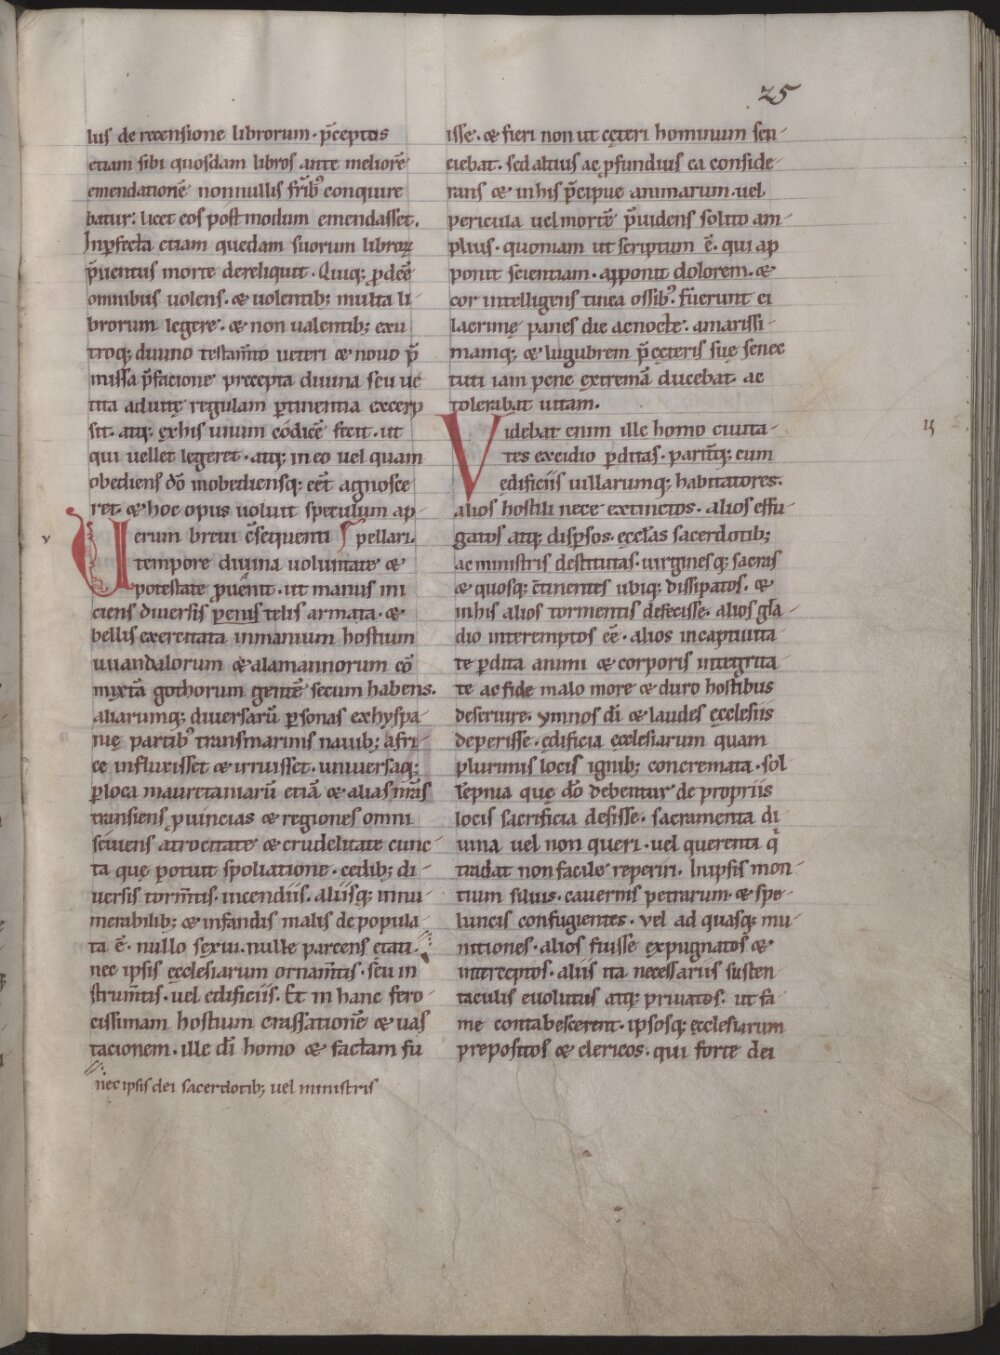 25
lus de recensione librorum · p̄ceptos
etiam sibi quosdam libros ante meliorē
emendationē nonnullis fr̄ibꝰ conquire
batur: licet eos post modum emendasset.
Inꝑfecta etiam quedam suorum libroꝝ
p̄uentus morte dereliquit. Quiq; ꝓdeē
omnibus uolens · & uolentib; multa li
brorum legere · & non ualentib; exu
troq; diuino testam̄to ueteri & nouo p̄
missa p̄facione precepta diuina seu ue
tita aduitę regulam ꝑtinentia excerp
sit · atq; exhis unum codicē fecit · ut
qui uellet legeret · atq; in eo uel quam
obediens dō inobediensq; eēt agnosce
ret · & hoc opus uoluit speculum ap
pellari.
Uerum breui c̄sequenti
tempore diuina uoluntate &
potestate ꝓuenit · ut manus ini
ciens diuersis penis telis armata · &
bellis exercitata inmanium hostium
uuandalorum & alamannorum cō
mixtā gothorum gentē secum habens.
aliarumq; diuersarū ꝑsonas exhyspa
nię partibꝰ transmarinis nauib; afri
ce influxisset & irruisset · uniuersaq;
ꝑloca mauretaniarū etiā & alias nr̄as
transiens ꝓuincias & regiones omni
seuiens atrocitate & crudelitate cunc
ta que potuit spoliatione · cedib; di
uersis torm̄tis · incendiis · aliisq; innu
merabilib; & infandis malis depopula
ta ē · nullo sexui · nulle parcens etati ·
nec ipsis ecclesiarum ornam̄tis · seu in
strum̄tis · uel edificiis. Et in hanc fero
cissimam hostium crassationē & uas
tacionem · ille dī homo & factam fu
nec ipsis dei sacerdotib; uel ministris
isse · & fieri non ut cęteri hominum sen
ciebat · sed altius ac ꝓfundius ea conside
rans & inhis p̄cipue animarum uel
pericula uel mortē p̄uidens solito am
plius · quoniam ut scriptum ē · qui ap
ponit scientiam · apponit dolorem · &
cor intelligens tinea ossibꝰ · fuerunt ei
lacrimę panes die acnocte · amarissi
mamq; & lugubrem p̄cęteris suę senec
tuti iam pene extremā ducebat · ac
tolerabat uitam.
Videbat enim ille homo ciuita
tes excidio ꝑditas · parit̄q; cum
edificiis uillarumq; habitatores.
alios hostili nece extinctos · alios effu
gatos atq; disꝑsos · eccl̄as sacerdotib;
ac ministris destitutas · uirginesq; sacras
& quosq; c̄tinentes ubiq; dissipatos · &
inhis alios tormentis defecisse · alios gla
dio interemptos eē · alios in captiuita
te ꝑdita animi & corporis integrita
te ac fide malo more & duro hostibus
deseruire · ymnos dī & laudes ecclesiis
deperisse · edificia ecclesiarum quam
plurimis locis ignib; concremata · sol
lēpnia quę dō debentur de propriis
locis sacrificia desisse · sacramenta di
uina uel non queri · uel querenti q̄
tradat non facile reperiri · Inipsis mon
tium siluis · cauernis petrarum · & spe
luncis confugientes · vel ad quasq; mu
nitiones · alios fuisse expugnatos &
interceptos · aliis ita necessariis susten
taculis euolutus atq; priuatos · ut fa
me contabescerent · ipsosq; ecclesiarum
prepositos & clericos · qui forte dei